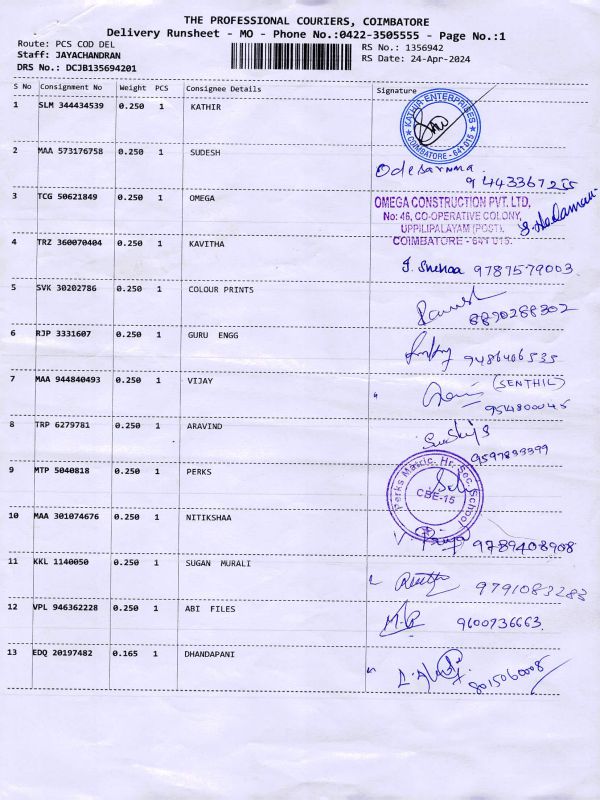 THE PROFESSIONAL COURIERS, COIMBATORE
Delivery Runsheet - MO - Phone No.:0422-3505555 - Page No.:1
Route: PCS COD DEL
Staff: JAYACHANDRAN
DRS No.: DCJB135694201
RS No.: 1356942
RS Date: 24-Apr-2024
S No Consignment No Weight PCS Consignee Details Signature
1 SLM 344434539 0.250 1 KATHIR
KATHIR ENTERPRISES
COIMBATORE - 641 015
2 MAA 573176758 0.250 1 SUDESH
3 TCG 50621849 0.250 1 OMEGA
OMEGA CONSTRUCTION PVT. LTD,
No: 46, CO-OPERATIVE COLONY,
UPPILIPALAYAM (POST),
COIMBATORE - 641 015.
4 TRZ 360070404 0.250 1 KAVITHA
J. Snehaa 9787579003
5 SVK 30202786 0.250 1 COLOUR PRINTS
8870288302
6 RJP 3331607 0.250 1 GURU ENGG
9486406535
7 MAA 944840493 0.250 1 VIJAY
(SENTHIL)
9514800045
8 TRP 6279781 0.250 1 ARAVIND
9597833399
9 MTP 5040818 0.250 1 PERKS
Perks Matric. Hr. Sec. School
CBE-15
10 MAA 301074676 0.250 1 NITIKSHAA
9789408908
11 KKL 1140050 0.250 1 SUGAN MURALI
9791083283
12 VPL 946362228 0.250 1 ABI FILES
M.R 9600736663
13 EDQ 20197482 0.165 1 DHANDAPANI
8015060008